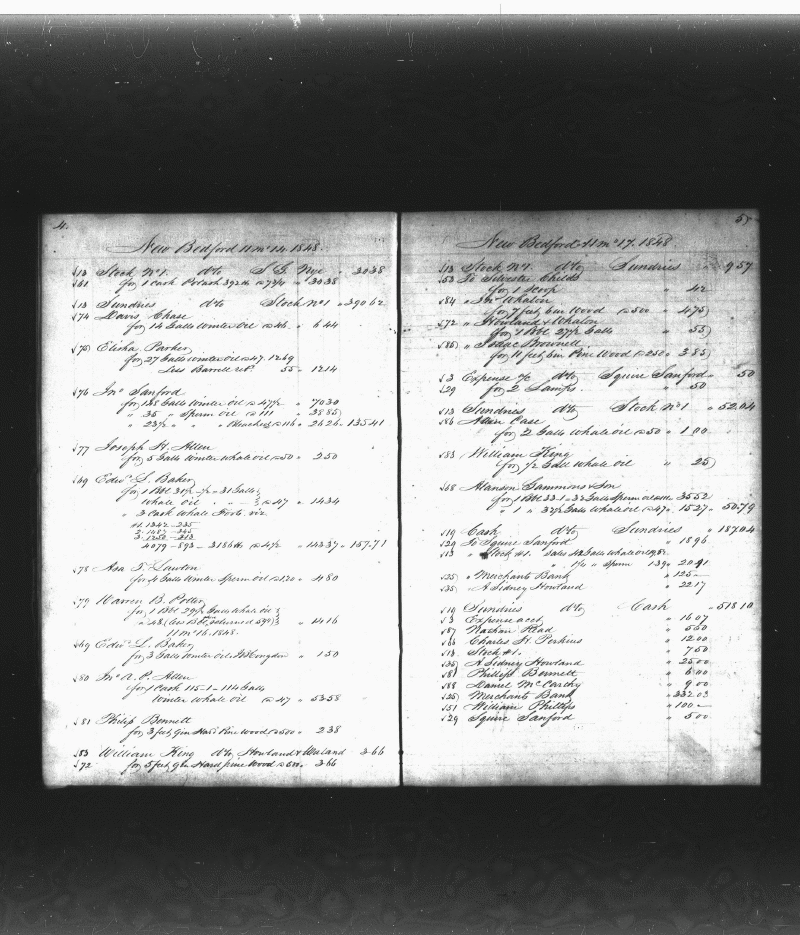 4.
New Bedford 11 mo 14. 1848.
√13 Stock No 1. d to S. G. Nye " 30 38
√61 for 1 Cask Potash 392 lb @ 7 3/4 " 30 38
√13 Sundries d to Stock No 1 " 390 62
√74 Davis Chase
for 14 Galls Winter Oil @ 46. " 6 44
√75 Elisha Parker
for 27 Galls winter oil @ 47. 12 69
Less Barrell retd 55 " 12 14
√76 Jno Sanford
for 148 Galls Winter oil @ 47 1/2 " 70 30
" 35 " Sperm oil @ 111 " 38 85
" 23 1/2 " " " Bleached @ 116 " 26 26 " 135 41
√77 Joseph H. Allen
for 5 Galls Winter whale oil @ 50 " 2 50
√49 Edwd L. Baker
for 1 Bbl 31 1/2 - 1/2 = 31 Galls
Whale oil " " " @ 47 " 14 34
" 3 Cask Whale Foots. viz
#1. 1342 - 235
2. 1487 - 345
3. 1250 - 313
4079 - 893 - 3186 lb @ 4 1/2 " 143 37 " 157 71
√78 Asa T. Lawton
for 4 Galls Winter Sperm oil @ 120 " 4 80
√79 Warren B. Potter
for 1 Bbl 29 1/2 Galls Whale oil
@ 48 (Les Bbl returned 59 c) " 14 16
11 mo 16. 1848.
√49 Edwd L. Baker
for 3 Galls Winter oil " 1 50
√80 Jno A. P. Allen
for 1 Cask 115 - 1 - 114 Galls
Winter whale oil @ 47 " 53 58
√81 Philip Bennett
for 3 feet 9 in Hard Pine Wood @ 500 " 2 38
√83 William King d to Howland & Waland 3 66
√72 for 5 feet 9 in Hard pine Wood @ 500 " 3 66
5
New Bedford 11 mo 17. 1848
√13 Stock No 1. d to Sundries " 9 57
√53 To Silvester Childs
for 1 Scoop " 42
√84 " Jno Whalon
for 7 feet 6 in Wood @ 500 " 4 75
√72 " Howland & Whalon
for 1 Bbl. 27 1/2 Galls " 55
√86 " Isaac Brownell
for 11 feet 6 in Pine Wood @ 250 " 3 85
√3 Expense a/c d to Squire Sanford " 50
√29 for 2 Lamps " 50
√13 Sundries d to Stock No 1 " 52 04
√86 Allen Case
for 2 Galls Whale oil @ 50 " 1 00
√83 William King
for 1/2 Gall Whale oil " 25
√68 Alanson Gammons & Son
for 1 Bbl 32 Galls Sperm oil @ 111 " 35 52
" 1 " 32 1/2 Galls Whale oil @ 47 " 15 27 " 50 79
√19 Cash d to Sundries " 187 04
√29 To Squire Sanford " 18 96
√13 " Stock #1. Sales 42 Galls Whale oil
" 1 1/2 " Sperm 1 39 " 20 91
√25 " Merchants Bank " 125 —
√35 " A Sidney Howland " 22 17
√19 Sundries d to Cash " 518 10
√3 Expense acct " 16 07
√87 Nathan Head " 5 50
√66 Charles H. Perkins " 12 00
√13 Stock #1. " 7 50
√35 A. Sidney Howland " 25 00
√81 Phillip Bennett " 6 00
√88 Daniel McCarthy " 9 00
√25 Merchants Bank " 332 03
√51 William Phillips " 100 —
√29 Squire Sanford " 5 00